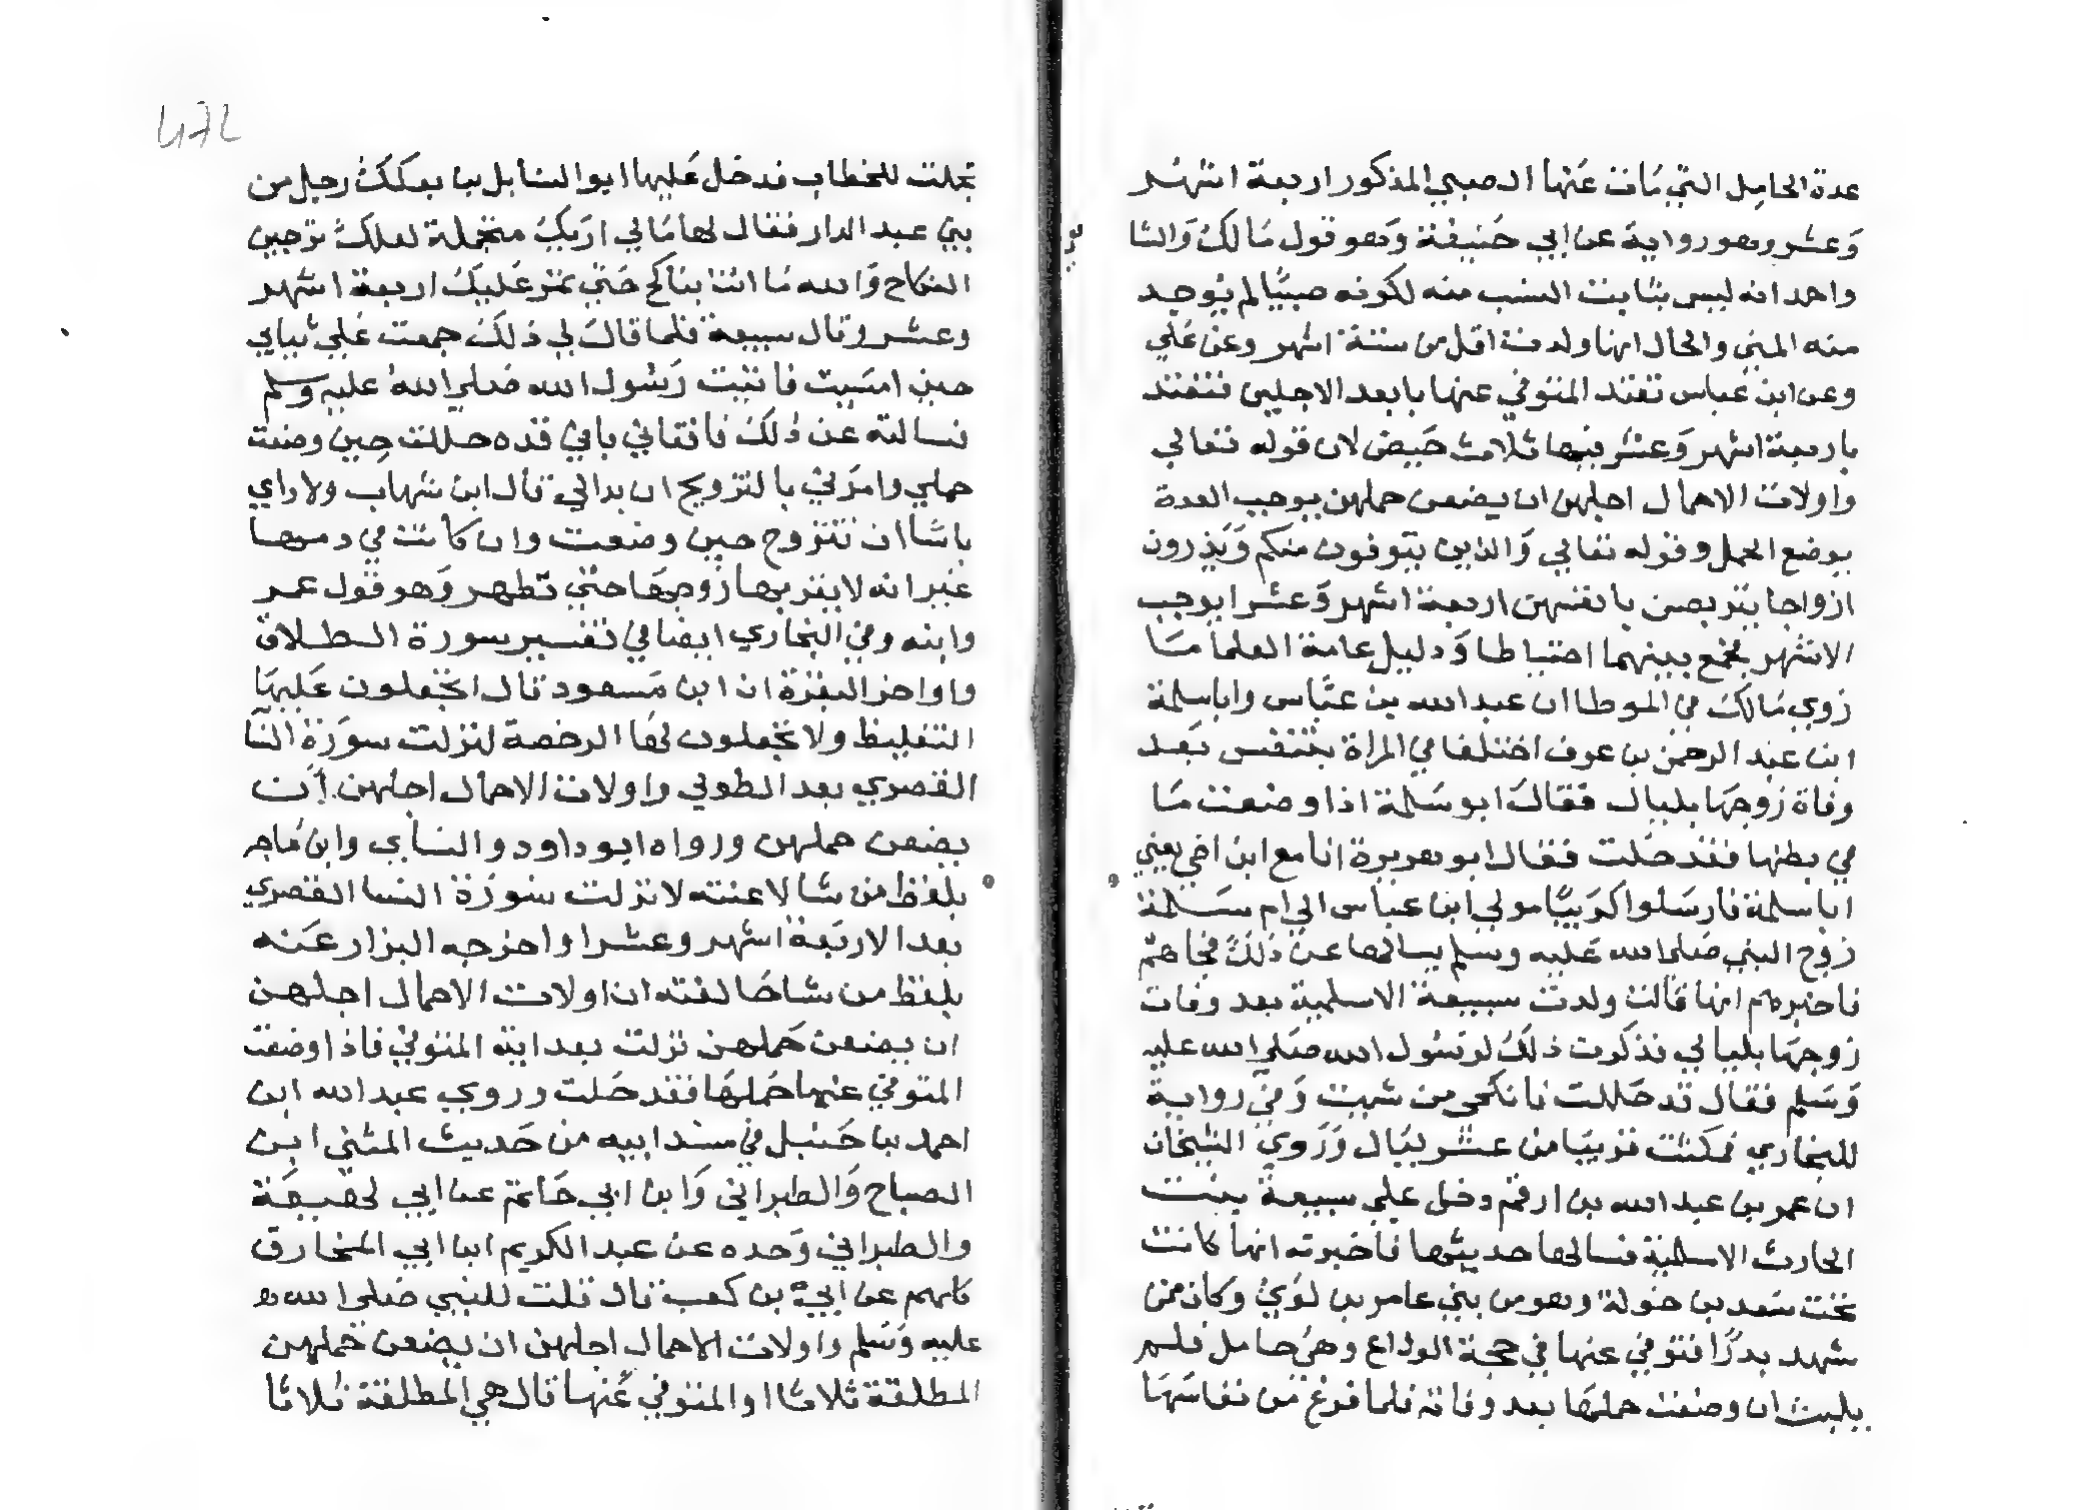 عدة الحامل التي مات عنها الصبي المذكور اربعة اشهر
وعشر وهو رواية عن ابي حنيفة وهو قول مالك والشا
واحد انه ليس بثابت النسب منه لكونه صبيا لم يوجد
منه المني والحال انها ولدت اقل من ستة اشهر وعن علي
وعن ابن عباس تعتد المتوفي عنها بابعد الاجلين فتعتد
باربعة اشهر وعشر فيها ثلاث حيض لان قوله تعالي
واولات الاحمال اجلهن ان يضعن حملهن يوجب العدة
بوضع الحمل وقوله تعالي والذين يتوفون منكم ويذرون
ازواجا يتربصن بانفسهن اربعة اشهر وعشرا يوجب
الاشهر يجمع بينهما احتياطا ودليل عامة العلما ما
روي مالك في الموطا ان عبد الله بن عباس واباسلمة
ابن عبد الرحمن بن عوف اختلفا في المراة تنفس بعد
وفاة زوجها بليال فقال ابو سلمة اذا وضعت ما
في بطنها فقد حلت فقال ابو هريرة انا مع ابن اخي يعني
اباسلمة فارسلوا كريبا مولي ابن عباس الي ام سلمة
زوج النبي صلي الله عليه وسلم يسالها عن ذلك فجاهم
فاخبرهم انها قالت ولدت سبيعة الاسلمية بعد وفات
زوجها بليالي فذكرت ذلك لرسول الله صلي الله عليه
وسلم فقال قد حللت فانكحي من شيت وفي رواية
للبخاري فمكثت قريبا من عشر ليال وروي الشيخان
ان عمر بن عبد الله بن ارقم دخل علي سبيعة بنت
الحارث الاسلمية فسالها حديثها فاخبرته انها كانت
تحت سعد بن خولة وهو من بني عامر بن لوي وكان ممن
شهد بدرا فتوفي عنها في حجة الوداع وهي حامل فلم
يلبث ان وضعت حملها بعد وفاته فلما فرغ من نفاسها
472
تجملت للخطاب فدخل عليها ابو السنابل بن بعكك رجل من
بني عبد الدار فقال لها مالي اريك متجملة لعلك ترجين
النكاح والله ما انت بناكح حتي تمر عليك اربعة اشهر
وعشر وقال سبيعة فلما قال لي ذلك جمعت علي ثيابي
حين امسيت فاتيت رسول الله صلي الله عليه وسلم
فسالته عن ذلك فافتاني باني قده حللت حين وضعت
حملي وامرني بالتزويج ان بدالي قال ابن شهاب ولاراي
باسا ان تتزوج حين وضعت وان كانت في دمها
غير انه لا يقربها زوجها حتي تطهر وهو قول عمر
وابنه وفي البخاري ايضا في تفسير سورة الطلاق
واواخر البقرة ان ابن مسعود قال اتجعلون عليها
التغليظ ولا تجعلون لها الرخصة لنزلت سورة النسا
القصري بعد الطولي واولات الاحمال اجلهن ان
يضعن حملهن ورواه ابو داود والنسابي وابن ماجه
بلفظ من شا لاعنته لانزلت سورة النسا القصري
بعد الاربعة اشهر وعشرا واخرجه البزار عنه
بلفظ من شا حالفته ان اولات الاحمال اجلهن
ان يضعن حملهن نزلت بعد اية المتوفي فاذا وضعت
المتوفي عنها حملها فقد حلت وروي عبد الله ابن
احمد بن حنبل في مسند ابيه من حديث المثني ابن
الصباح والطبراني وابن ابي حاتم عن ابي لهيعة
والطبراني وحده عن عبد الكريم ابن ابي المخارق
كلهم عن ابي بن كعب قال قلت للنبي صلي الله
عليه وسلم واولات الاحمال اجلهن ان يضعن حملهن
المطلقة ثلاثا او المتوفي عنها قال هي المطلقة ثلاثا